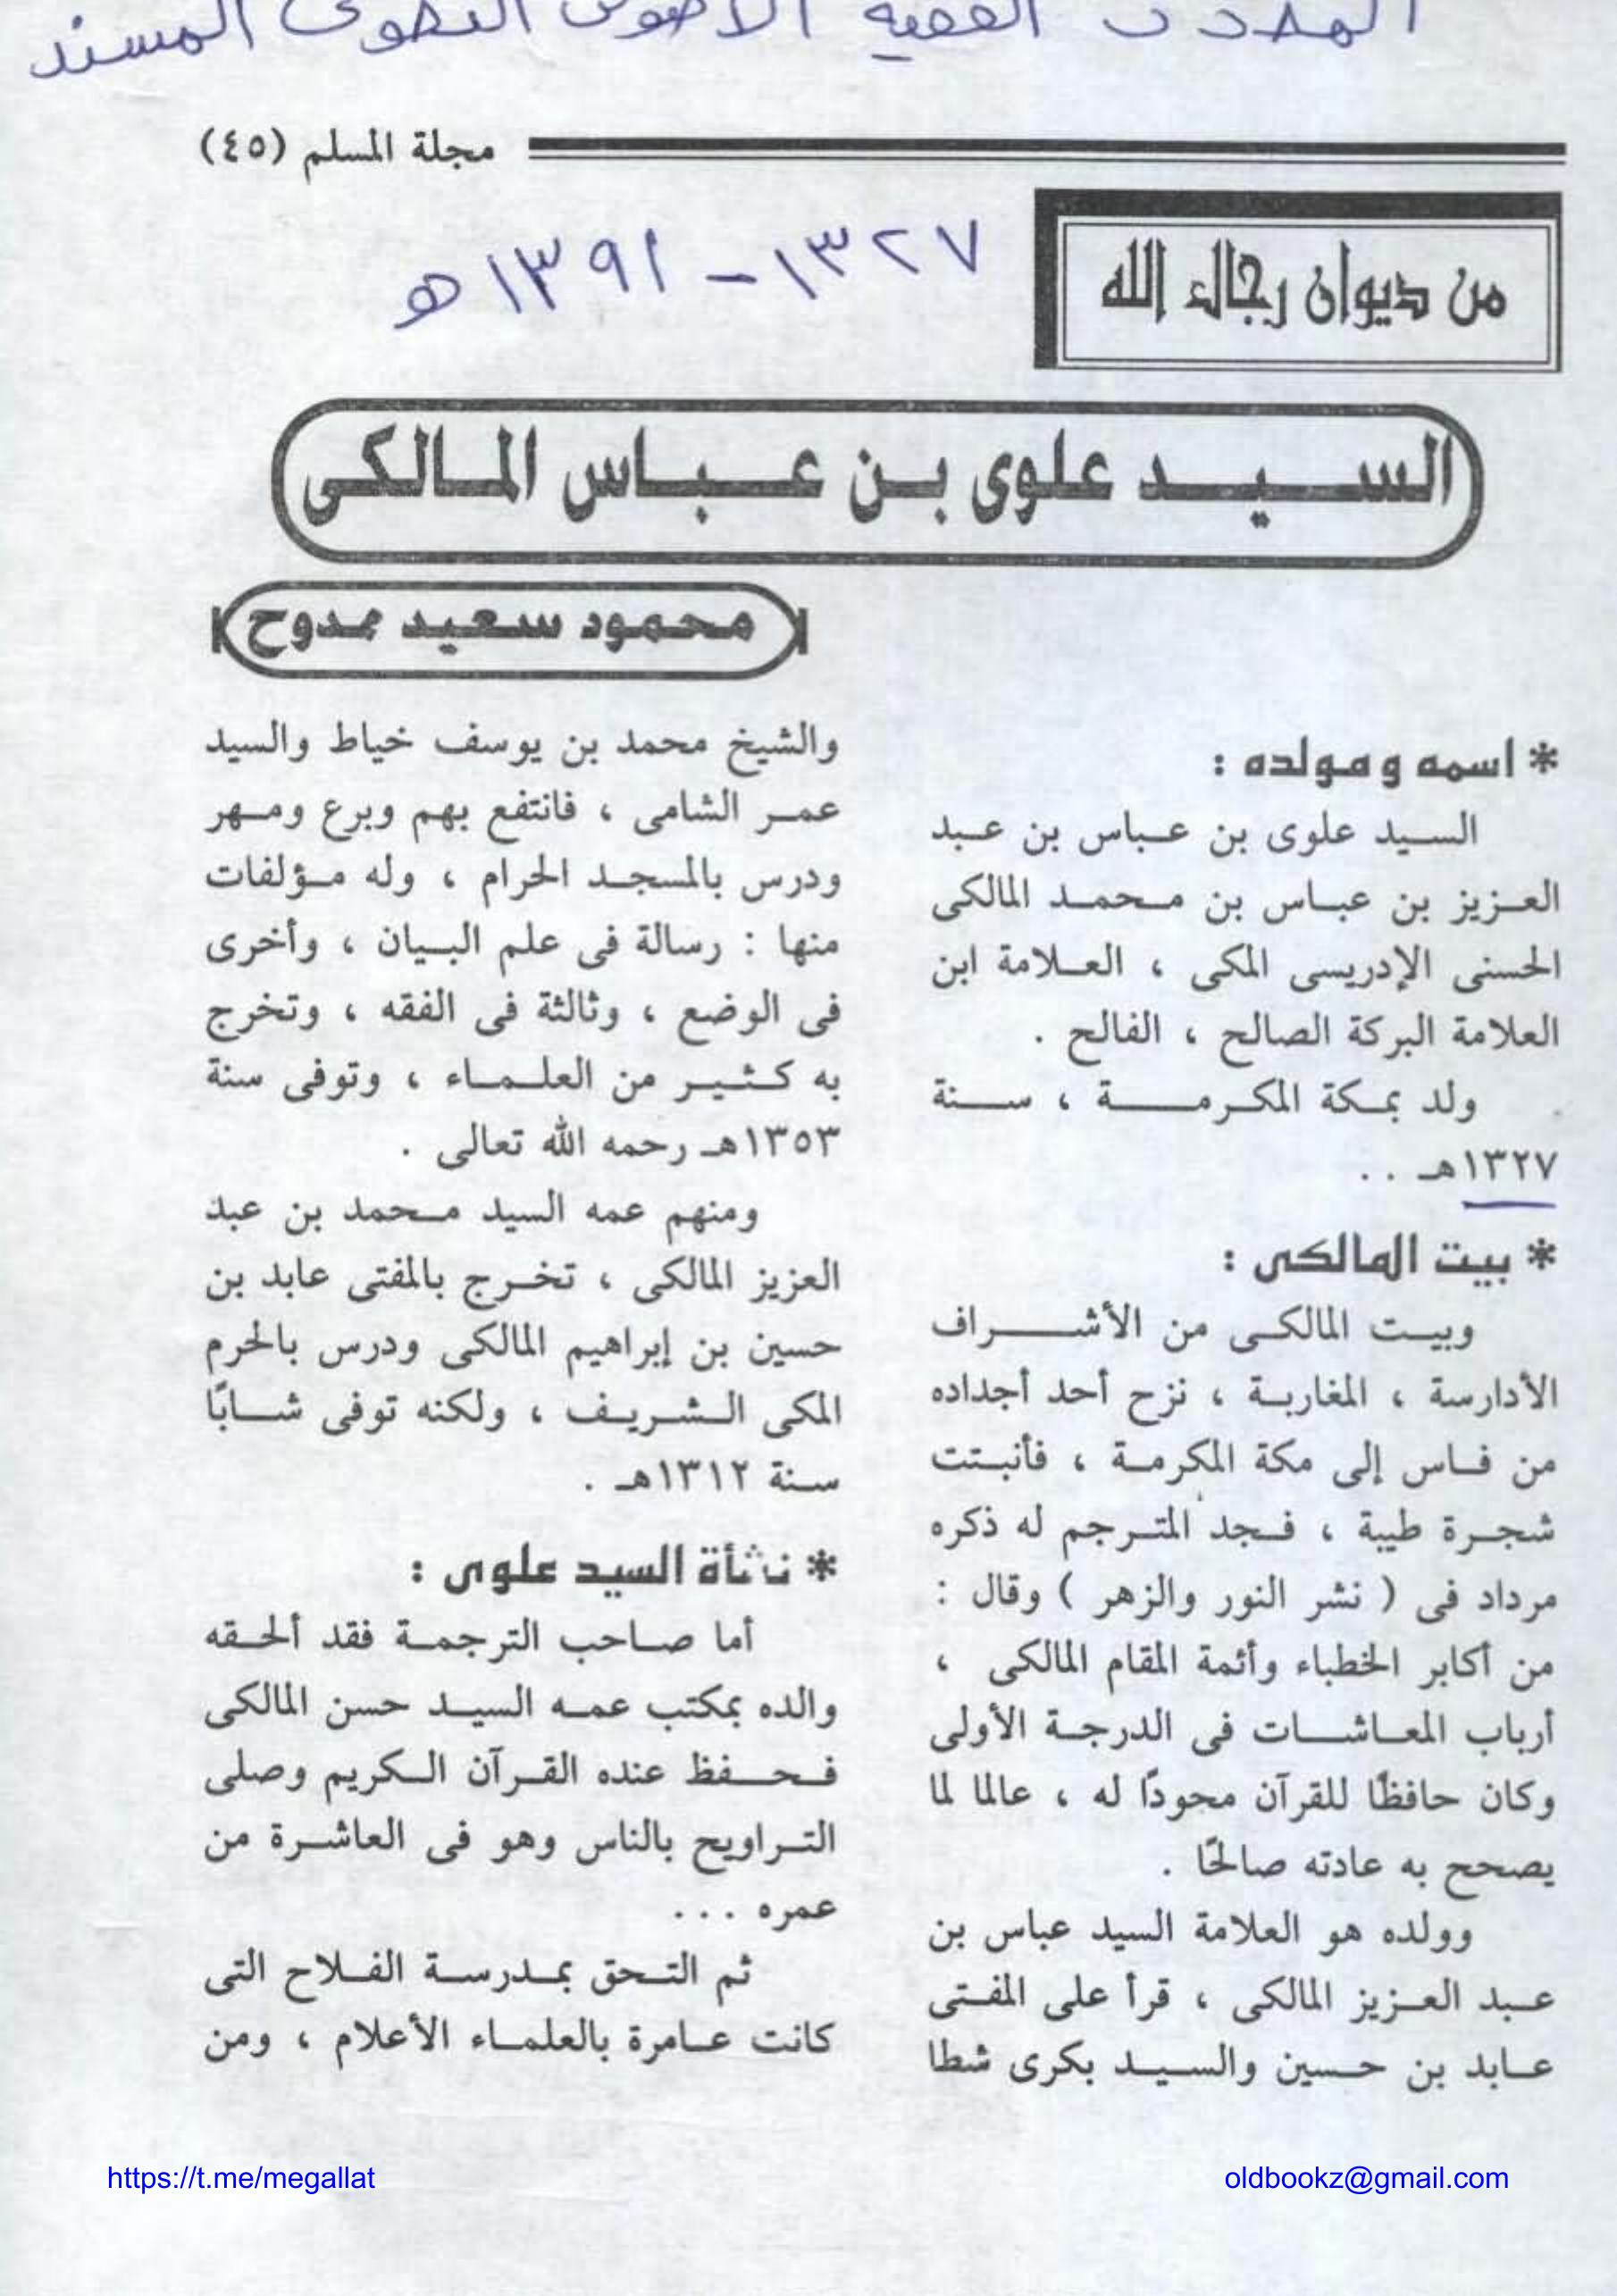 الفقيه
المسند
مجلة المسلم (٤٥)
من ديوان رجال الله
١٣٢٧ - ١٣٩١ هـ
السيد علوى بن عباس المالكى
محمود سعيد ممدوح
* اسمه ومولده :
السيد علوى بن عباس بن عبد
العزيز بن عباس بن محمد المالكى
الحسنى الإدريسى المكى ، العلامة ابن
العلامة البركة الصالح ، الفالح .
ولد بمكة المكرمة ، سنة
١٣٢٧هـ ..
* بيت المالكى :
وبيت المالكى من الأشراف
الأدارسة ، المغاربة ، نزح أحد أجداده
من فاس إلى مكة المكرمة ، فأنبتت
شجرة طيبة ، فجد المترجم له ذكره
مرداد فى ( نشر النور والزهر ) وقال :
من أكابر الخطباء وأئمة المقام المالكى ،
أرباب المعاشات فى الدرجة الأولى
وكان حافظًا للقرآن مجودًا له ، عالما لما
يصحح به عادته صالحًا .
وولده هو العلامة السيد عباس بن
عبد العزيز المالكى ، قرأ على المفتى
عابد بن حسين والسيد بكرى شطا
والشيخ محمد بن يوسف خياط والسيد
عمر الشامى ، فانتفع بهم وبرع ومهر
ودرس بالمسجد الحرام ، وله مؤلفات
منها : رسالة فى علم البيان ، وأخرى
فى الوضع ، وثالثة فى الفقه ، وتخرج
به كثير من العلماء ، وتوفى سنة
١٣٥٣هـ رحمه الله تعالى .
ومنهم عمه السيد محمد بن عبد
العزيز المالكى ، تخرج بالمفتى عابد بن
حسين بن إبراهيم المالكى ودرس بالحرم
المكى الشريف ، ولكنه توفى شابًا
سنة ١٣١٢هـ .
* نشأة السيد علوى :
أما صاحب الترجمة فقد ألحقه
والده بمكتب عمه السيد حسن المالكى
فحفظ عنده القرآن الكريم وصلى
التراويح بالناس وهو فى العاشرة من
عمره ...
ثم التحق بمدرسة الفلاح التى
كانت عامرة بالعلماء الأعلام ، ومن
https://t.me/megallat
oldbookz@gmail.com